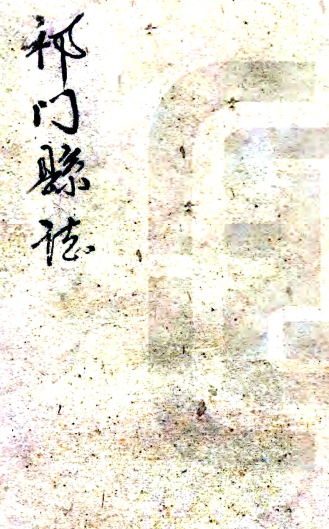 祁门縣誌